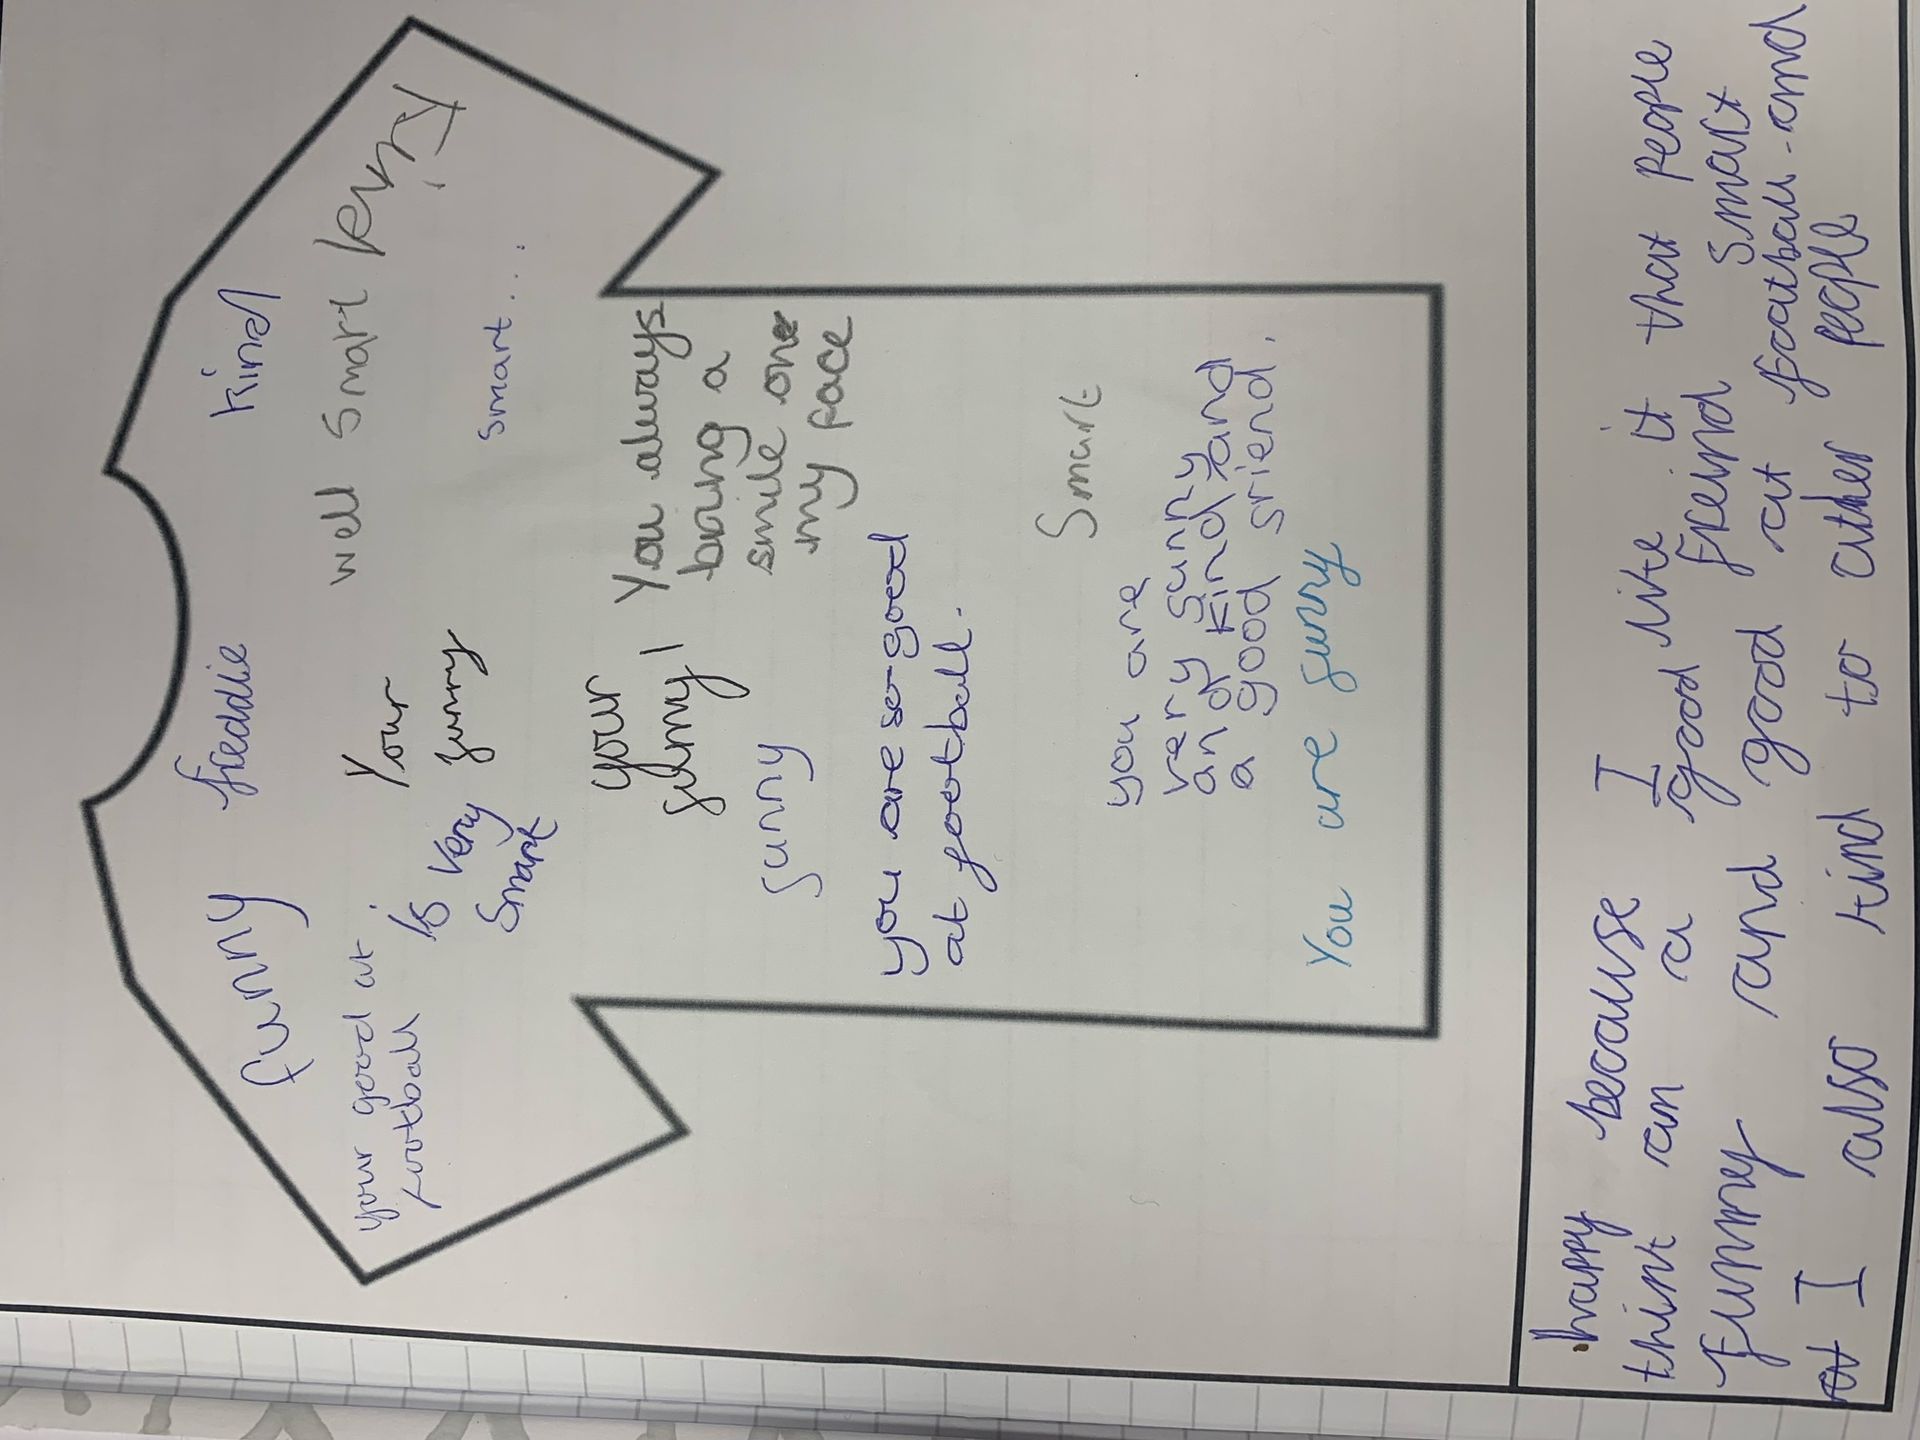 freddie
funny
kind
your good at
football
Your
funny
is very
smart
well smart
smart...
your
funny!
You always
bring a
smile one
my face
funny
you are so good
at football.
Smart
you are
very funny
and kind and
a good friend.
You are funny
happy because I like it that people
think an a good freind
funny and good at football and smart
I also kind to other people